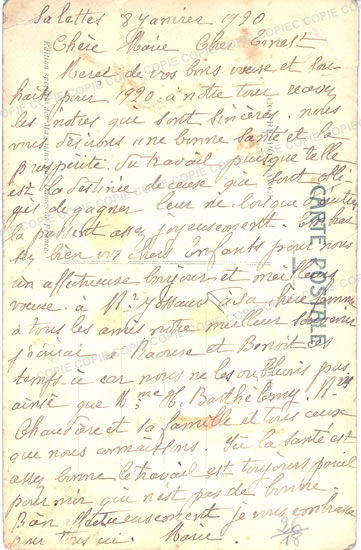 Salettes 8 Janvier 1920
Chère Marie Cher Ernest
Merci de vos bons vœux et sou-
haits pour 1920. a notre tour recevez
les notres que sont sincères. nous
vous désirons une bonne santé et la
prospérité du travail puisque telle
est la destinée de ceux que sont obli
gés de gagner leur vie lorsque d'autres
la passent assez joyeusement.
bien vos chers Enfants pour nous
un affectueux bonjour et meilleurs
vœux. à Mr à sa chère femme
à tous les amis notre meilleur souvenir
et Benoit ces
temps ci car nous ne les oublions pas
ainsi que Mme M. Barthélemy. Mr
et sa famille et tous ceux
que nous connaissons. Ici la santé est
assez bonne le travail est toujours pareil
pour moi que n'est pas de bonne
Bien affectueusement je vous embrasse
pour tous ici. Marie.
CARTE POSTALE
COPIE COPIE COPIE COPIE COPIE